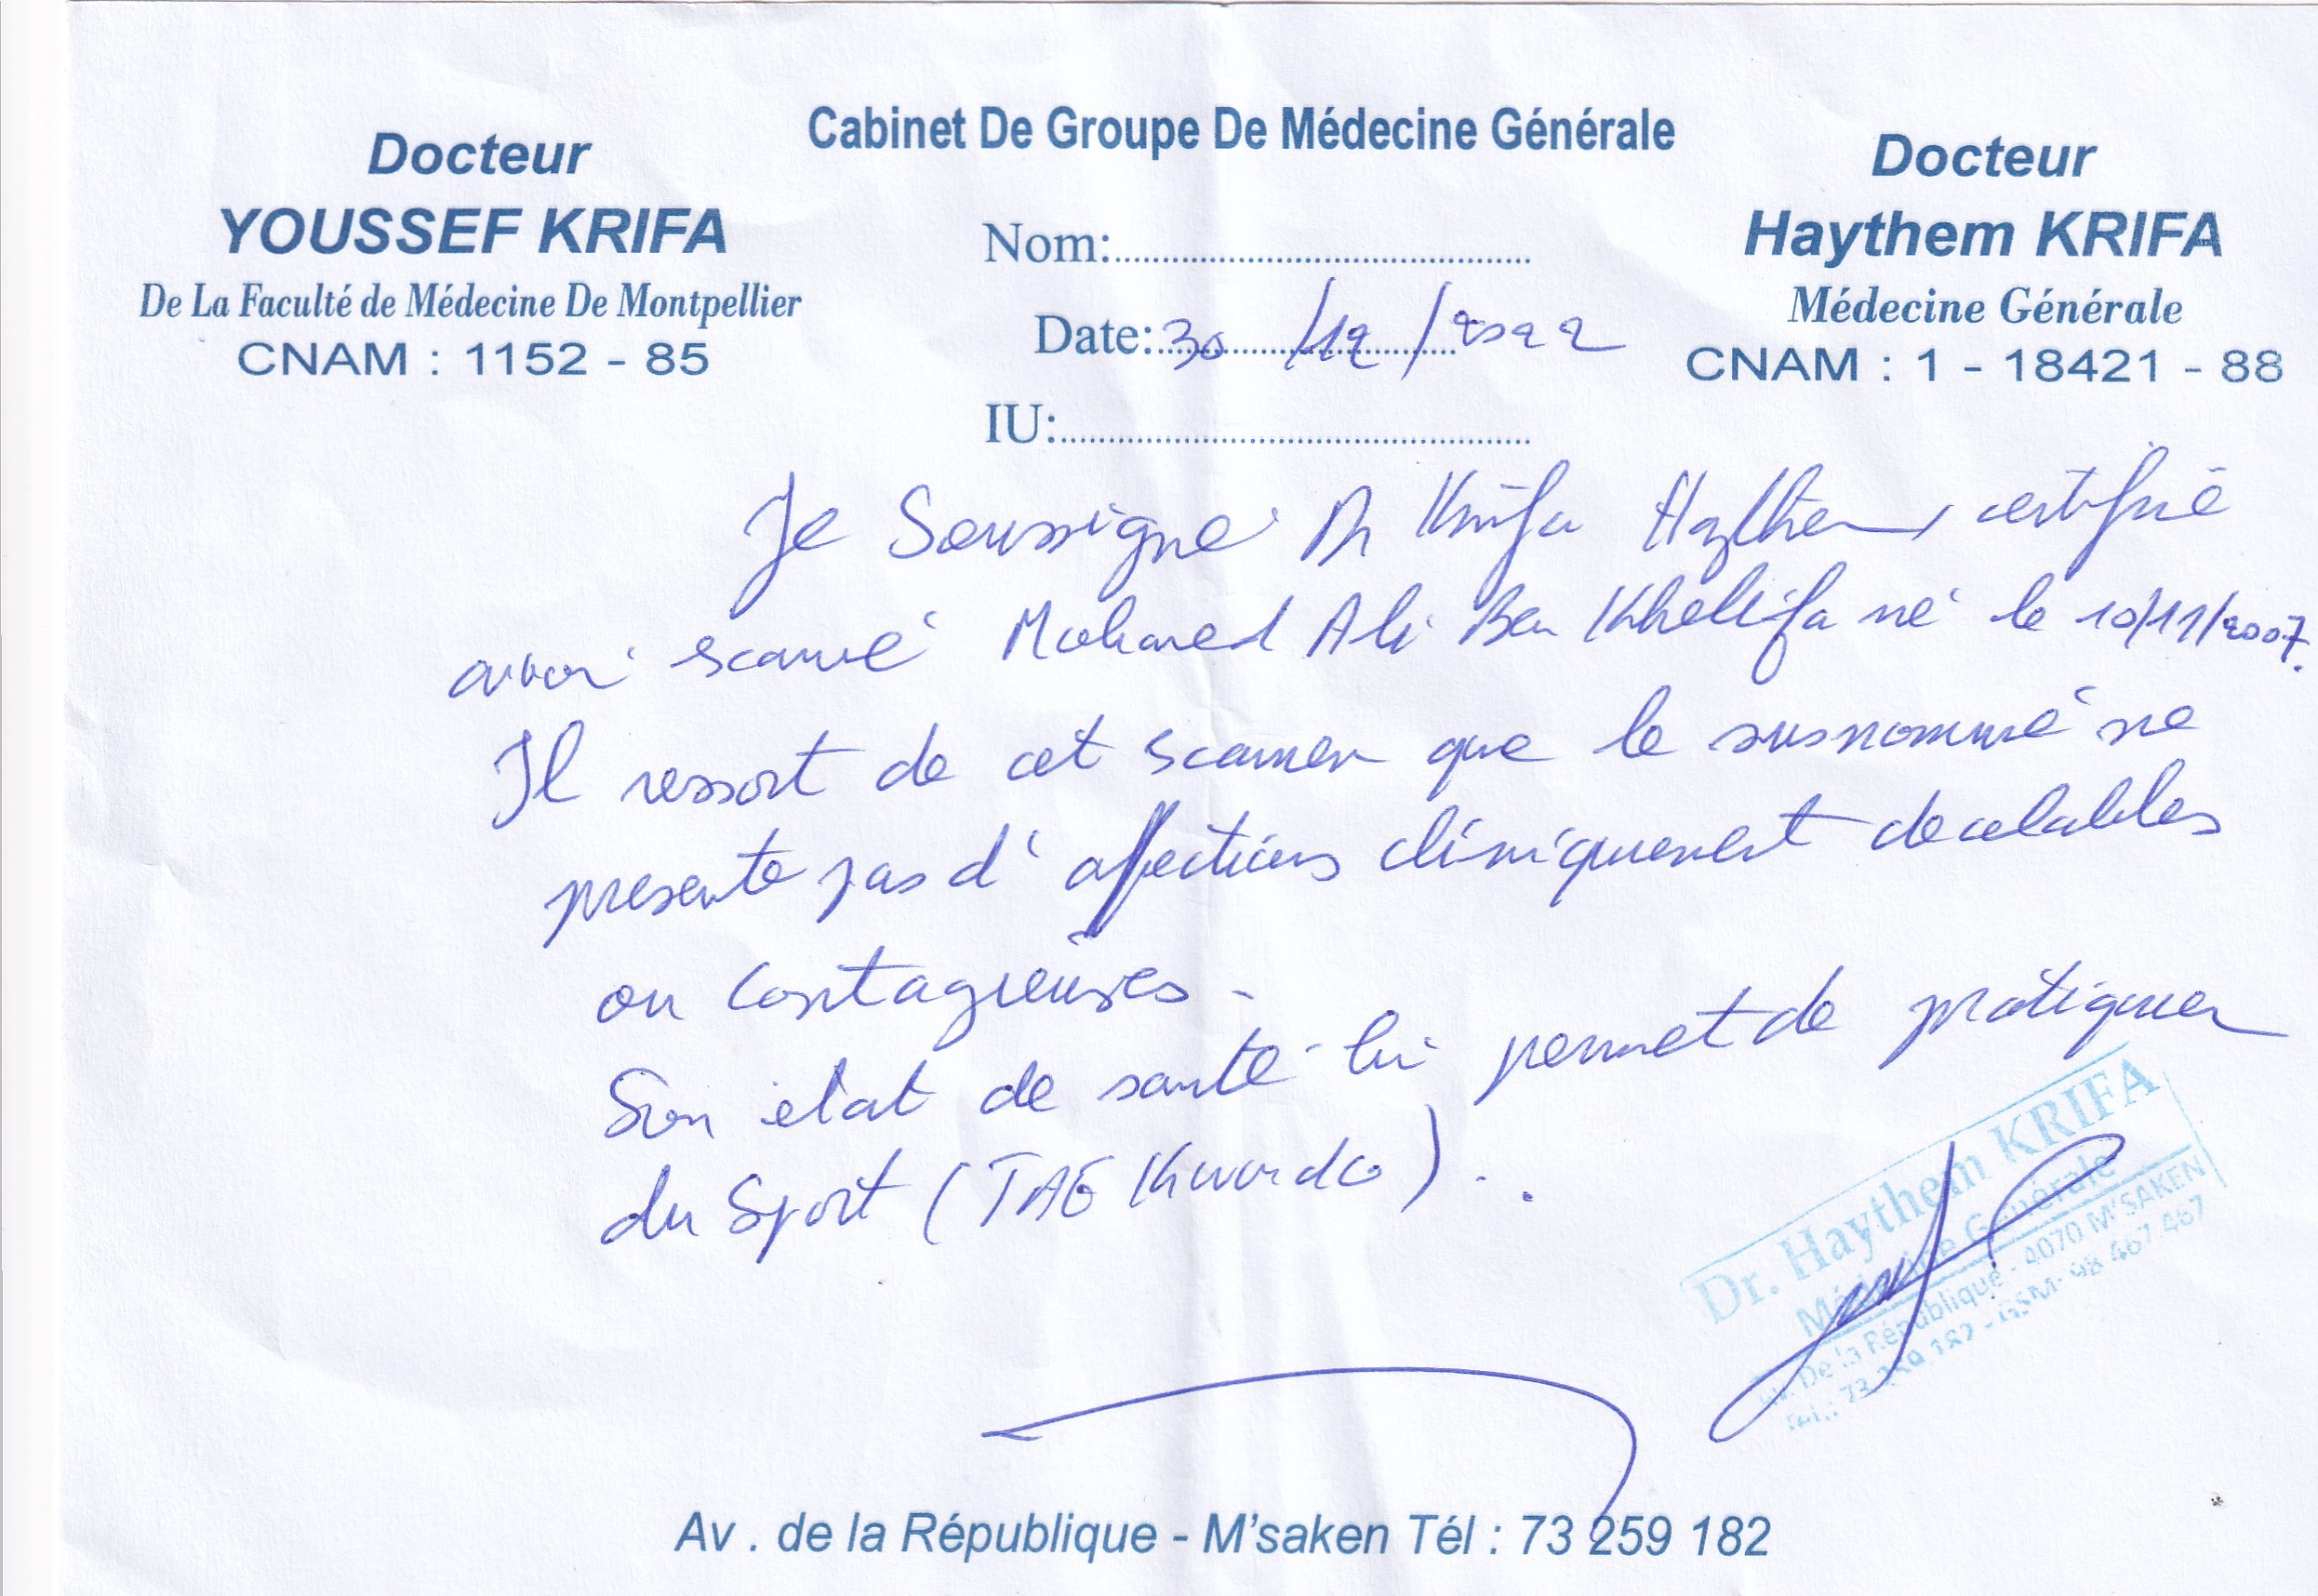 Cabinet De Groupe De Médecine Générale
Docteur
YOUSSEF KRIFA
De La Faculté de Médecine De Montpellier
CNAM : 1152 - 85
Nom:
Date: 30/12/2022
IU:
Docteur
Haythem KRIFA
Médecine Générale
CNAM : 1 - 18421 - 88
Je Soussigné Dr Krifa Haythem certifié
avoir examiné Mohamed Ali Ben Khelifa né le 10/11/2007.
Il ressort de cet examen que le susnommé ne
presente pas d'affections cliniquement decelables
ou contagieuses.
Son etat de santé lui permet de pratiquer
du Sport (TAE Kwondo).
Dr. Haythem KRIFA
Médecine Générale
Av. De la République - 4070 M'SAKEN
Tél.: 73 259 182 - GSM: 98 467 467
Av . de la République - M'saken Tél : 73 259 182